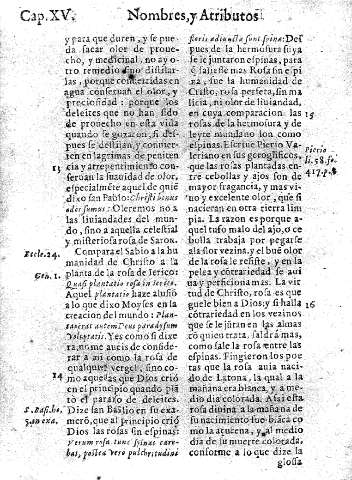 Cap. XV.
Nombres, y Atributos
y para que duren, y se pue
da sacar olor de proue
cho, y medicinal, no ay o
tro remedio sino distilar
las, porque conuertidas en
agua conseruan el olor, y
preciosidad: porque los
deleites que no han sido
de prouecho en esta vida
quando se gozaron, si des
pues se destilan, y conuier
ten en lagrimas de peniten
cia, y arrepentimiento con
seruan la suauidad de olor,
especialmẽte aquel de quiẽ
dixo san Pablo: Christi bonus
odor sumus: Oleremos no a
las liuiandades del mun
do, sino a aquella celestial
y misteriosa rosa de Saron.
Compara el Sabio a la hu
manidad de Christo a la
planta de rosa de Ierico:
Quasi plantatio rosæ in Ierico.
Aquel plantatio haze alusiõ
a lo que dixo Moysen en la
creacion del mundo: Plan
tauerat autem Deus paradysum
voluptatis. Yes como si dixe
ra, no aueis de conside
rar a asi como la rosa de
qualquier vergel, sino co
mo aquellas que Dios criò
en el principio quando plã
tò el paraiso de deleites.
Dize san Basilio en su exa
merõ, que al principio criò
Dios las rosas sin espinas:
Verum rosa tunc spinæ care
bat, postea vero pulchritudini
15
Eccle. 24.
Gen. 2.
14
S. Basi. ho.
5. in exa.
floris adiuncta sunt spinæ: Des
pues de la hermosura suya
le juntaron espinas, para
q̃ saliesse mas Rosa sin espi
na, fue la humanidad de
Cristo, rosa perfeta, sin ma
licia, ni olor de liuiandad,
en cuya comparacion las
rosas de la hermosura y de
leyte mundano son como
espinas. Escriue Pierio Va
leriano en sus geroglificos,
que las rosas plantadas en
tre cebollas y ajos son de
mayor fragancia, y mas vi
uo y excelente olor, que si
nacieran en otra tierra lim
pia. La razon es porque a
quel tufo malo del ajo, o ce
bolla trabaja por pegarse
a la flor vezina, y el buẽ olor
de la rosa le resiste, y en la
pelea y cõtrariedad se aui
ua y perficiona mas. La vir
tud de Christo, rosa es que
guele bien a Dios: y si halla
cõtrariedad en los vezinos
que se le jũtan en las almas
cõ quien trata, saldrà mas,
como sale la rosa entre las
espinas. Fingieron los poe
tas que la rosa auia naci
do de Latona, la qual a la
mañana era blanca, y a me
dio dia colorada. Assi esta
rosa diuina a la mañana de
su nacimiento fue blãca co
mo la açucena, y al medio
dia de su muerte colorada,
conforme a lo que dize la
glossa
15
Pierio
li. 58. fo.
417. p. 2
16